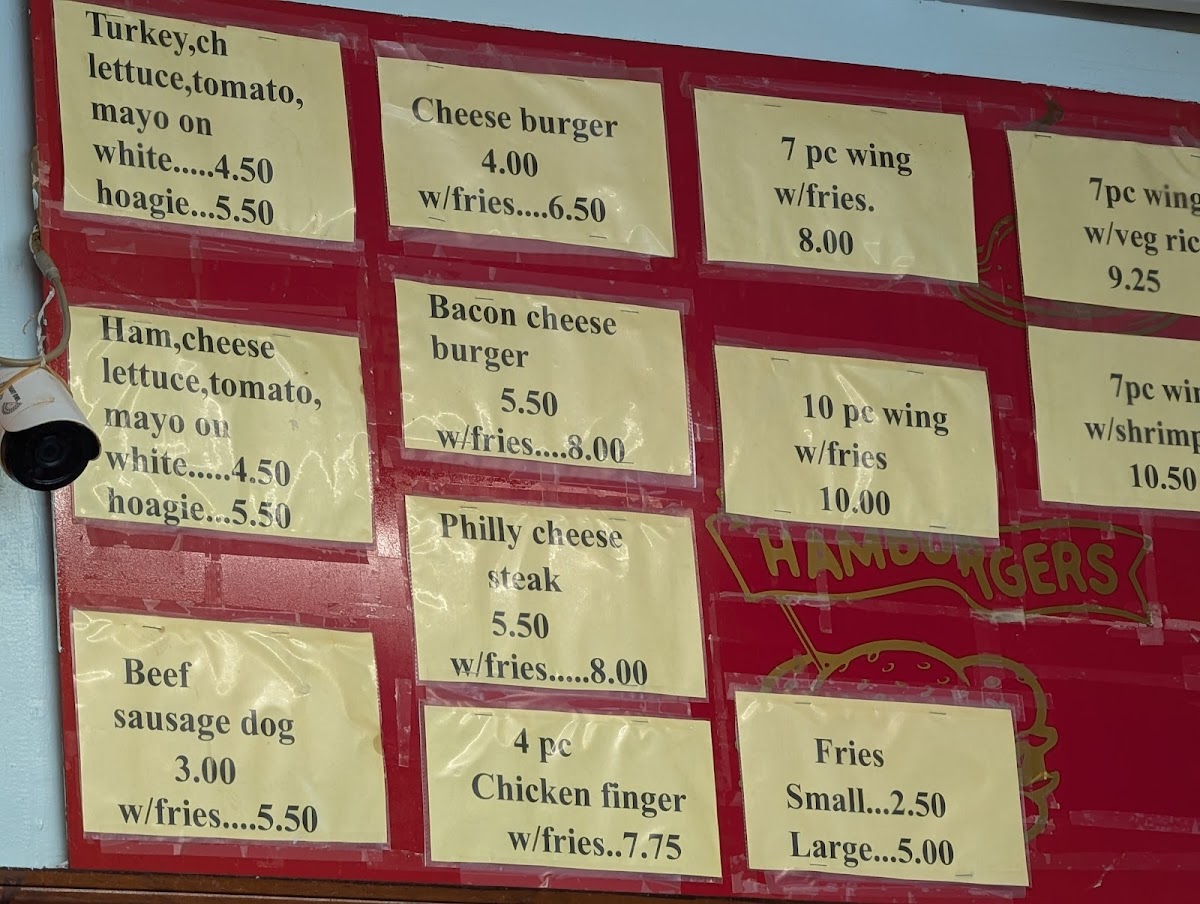 Turkey,ch
lettuce,tomato,
mayo on
white.....4.50
hoagie...5.50
Ham,cheese
lettuce,tomato,
mayo on
white.....4.50
hoagie...5.50
Beef
sausage dog
3.00
w/fries....5.50
Cheese burger
4.00
w/fries....6.50
Bacon cheese
burger
5.50
w/fries....8.00
Philly cheese
steak
5.50
w/fries.....8.00
4 pc
Chicken finger
w/fries..7.75
7 pc wing
w/fries.
8.00
10 pc wing
w/fries
10.00
HAMBURGERS
Fries
Small...2.50
Large...5.00
7pc wing
w/veg ric
9.25
7pc win
w/shrimp
10.50